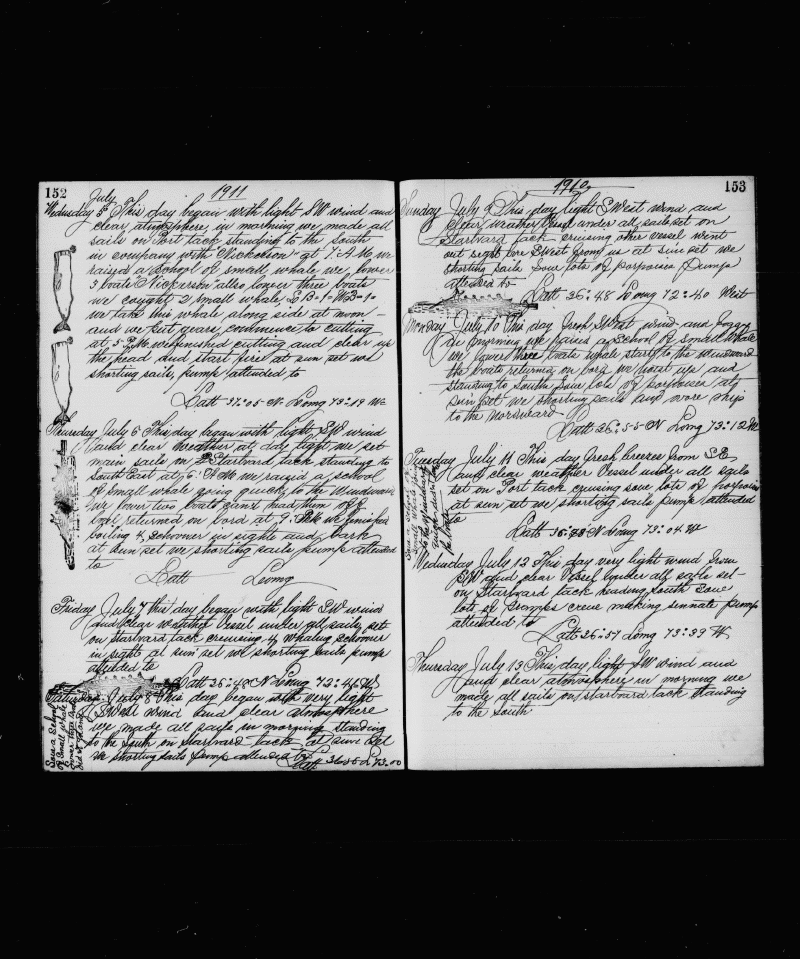 152
July 1911
Wednesday 5th This day began with light SW wind and
clear atmosphere, in morning we made all
sails on Port tack standing to the South
in company with Nickerson at 7. A M we
raised a School of small whale we lower
3 boats Nickerson also lower three boats
we caught 2 small whale S B-1- W B-1-
we take this whale along side at noon
and we put gears, commence to cutting
at 5. P M we finished cutting and clear up
the head and start fire at sun set we
shorting sails, pump attended to
Latt 37.05 N. Long 73.19 W
Thursday July 6 This day began with light SW wind
and clear weather at day light we set
main sails on Starbvard tack standing to
South East at 6. A M we raised a school
of small whale going quick to the Windward
we lower two boats
returned on bord at 9. we finished
boiling 4 schooner in sight and bark
at sun set we shorting sails pump attended
to
Latt Long
Friday July 7 this day began with light S W wind
and clear weather Vessel under all sails set
on Starbvard tack cruising 4 whaling schooner
in sight at sun set we shorting sails pump
attended to
Latt 36:48 N Long 72:41 W
Saturday July 8 This day began with very light
S West wind and clear atmosphere
we made all sails in morning standing
to the South on Starbvard tack at sun set
we shorting sails pump attended to
Latt 36:56 L 73.00
Saw a School
of Small whale
lower
did not
153
1910
Sunday July 9 This day light S West wind and
clear weather Vessel under all sails set on
Starbvard tack cruising other vessel went
out sight for S West from us at sun set we
shorting sails Saw lots of porpoises Pump
attended to
Latt 36:48 Long 72:40 West
Monday July 10 This day fresh S West wind and foggy
in morning we raised a School of small whale
we lower three boats whale start to the windward
the boats returned on bord we hoist up and
standing to South Saw lots of porpoises at
sun set we shorting sails and wore ship
to the norward
Latt 36:55 N Long 73:12 W
Tuesday July 11 This day fresh breeze from S E
and clear weather Vessel under all sails
set on Port tack cruising saw lots of porpoises
at sun set we shorting sails pump attended
to
Latt 36:48 N Long 73:04 W
Saw a School
Small whale
to the Windward
the boats
Wednesday July 12 This day very light wind from
S W and clear Vessel under all sails set
on Starbvard tack heading South Saw
lots of Gramps crew making sennate pump
attended to
Latt 36:57 Long 73:39 W
Thursday July 13 This day light S W wind and
and clear atmosphere in morning we
made all sails on starbvard tack standing
to the South